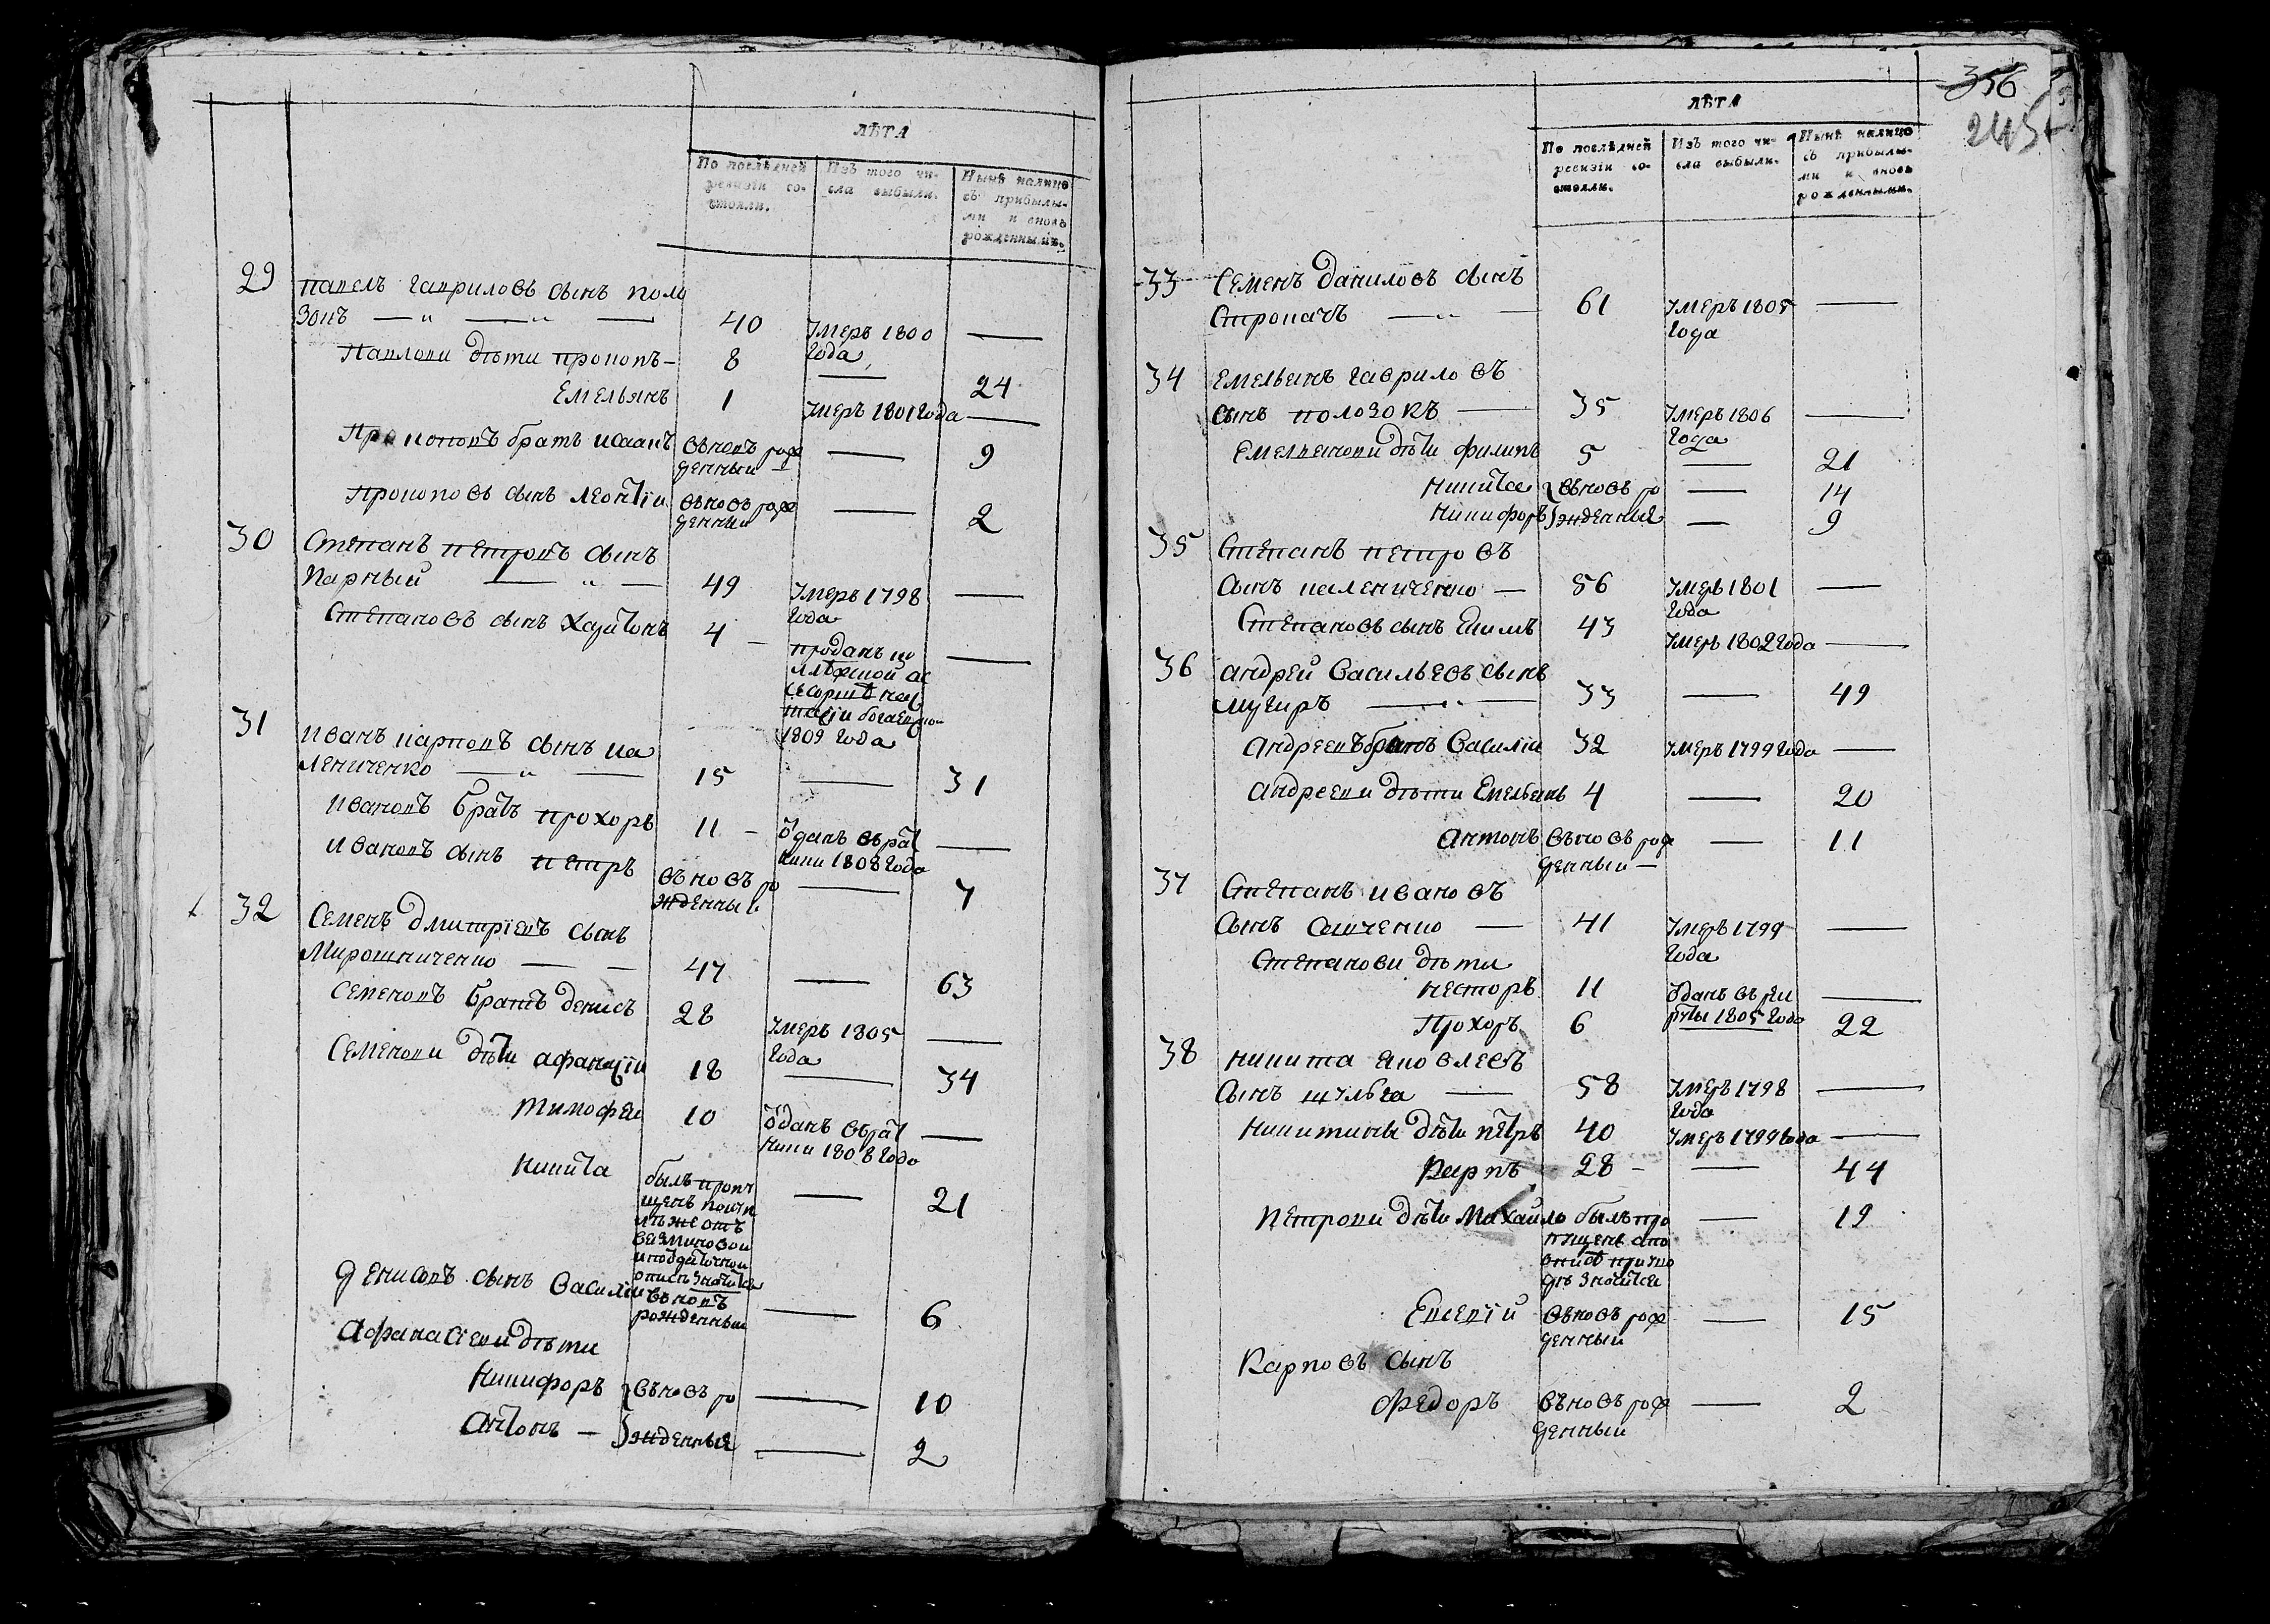 ЛѢТА
По послѣдней ревизіи со-стояли.
Изъ того чи-сла выбыли.
Нынѣ налицо съ прибылы-ми и вновь рожденными.
29 Павелъ Гавриловъ сынъ поло
зокъ — 40 Умеръ 1800 —
года
Павлови дѣти прокопъ — 8 — 24
Емельянъ 1 умеръ 1801 года —
Прокоповъ братъ иванъ вновь рож — 9
денный
Прокоповъ сынъ леонтіи вновь рож — 2
денный
30 Степанъ петровъ сынъ
Парный — 49 Умеръ 1798 —
года
Степановъ сынъ харитонъ 4 — проданъ —
1809 года
31 Иванъ карповъ сынъ ка
лениченко — 15 — 31
Ивановъ братъ прохоръ 11 — ѿданъ въ рат —
ники 1808 года
Ивановъ сынъ петръ вновь ро — 7
жденный
32 Семенъ дмитріевъ сынъ
Мирошниченко — 47 — 63
Семеновъ братъ денисъ 28 Умеръ 1805 —
года
Семенови дѣти афанасіи 18 — 34
тимофеи 10 ѿданъ въ рат —
ники 1808 года
Никита былъ пропу — 21
щенъ
Денисовъ сынъ Василіи вновь — 6
рожденный
Афанасіеви дѣти
Никифоръ вновь ро — 10
Антонъ — жденные — 2
356
245
ЛѢТА
По послѣдней ревизіи со-стояли.
Изъ того чи-сла выбыли.
Нынѣ налицо съ прибылы-ми и вновь рожденными.
33 Семенъ даниловъ сынъ
Строкачъ — 61 Умеръ 1805 —
года
34 Емельянъ гавриловъ
сынъ полозокъ — 35 Умеръ 1806 —
года
Емельянови дѣти филипъ 5 — 21
Никита вновь ро — 14
Никифоръ жденные — 9
35 Степанъ петровъ
сынъ калениченко — 56 Умеръ 1801 —
года
Степановъ сынъ Екимъ 43 Умеръ 1802 года —
36 Андрей Васильевъ сынъ
33 — 49
Андреевъ братъ Василіи 32 умеръ 1799 года —
Андрееви дѣти Емельянъ 4 — 20
Антонъ вновь рож — 11
денный —
37 Степанъ ивановъ
сынъ — 41 Умеръ 1799 —
года
Степанови дѣти
Несторъ 11 ѿданъ въ рек —
руты 1805 года
Прохоръ 6 22
38 Никита яковлевъ
сынъ шульга — 58 Умеръ 1798 —
года
Никитины дѣти петръ 40 Умеръ 1799 года —
Карпъ 28 — — 44
Петрови дѣти Михайло былъ про — 19
пущенъ
Евсевій вновь рож — 15
денный
Карповъ сынъ
Федоръ вновь рож — 2
денный